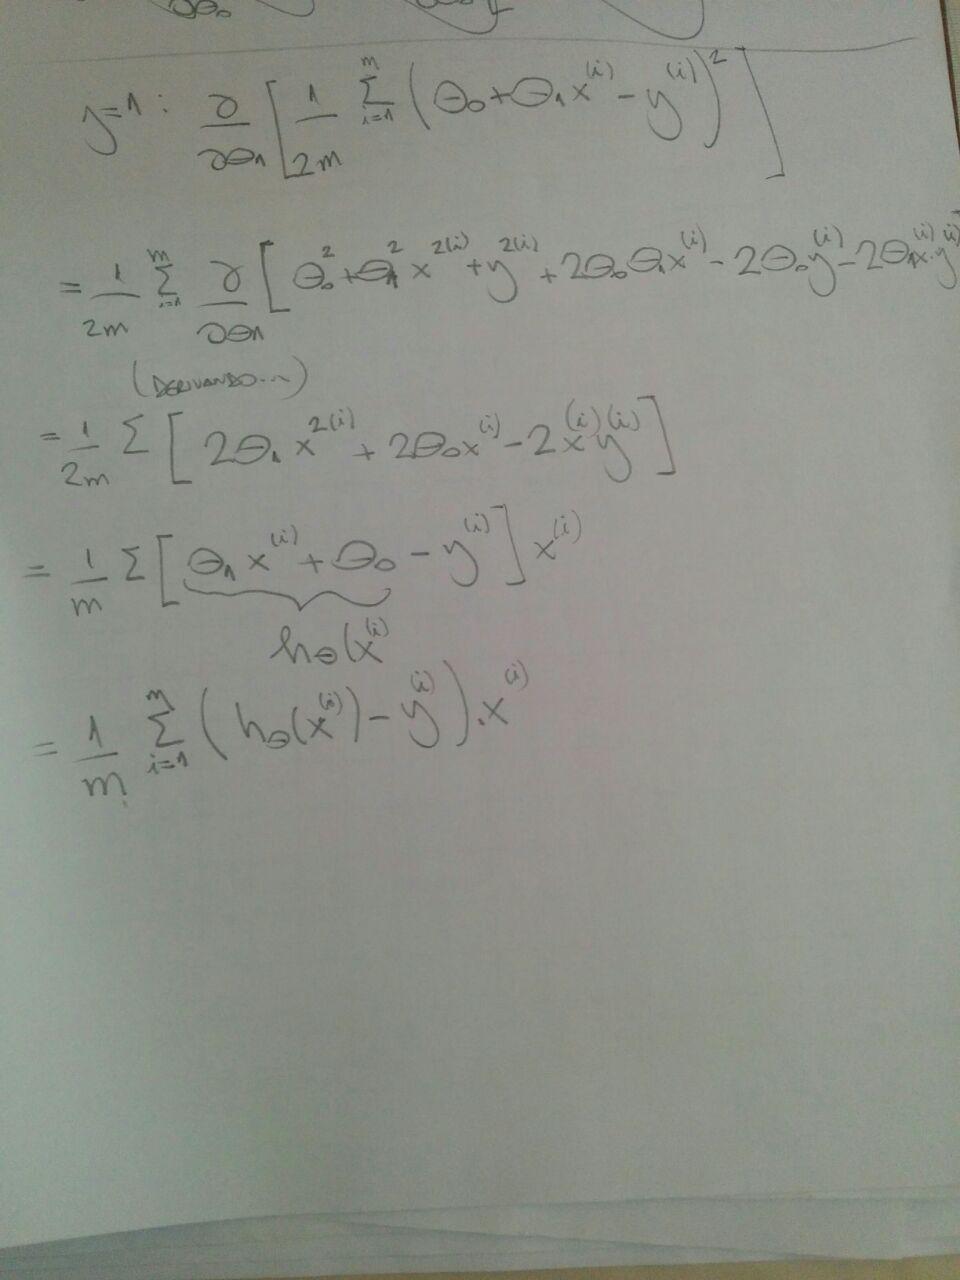 j=1: ∂/∂θ₁ [ 1/2m Σᵢ₌₁ᵐ (θ₀+θ₁x⁽ⁱ⁾ - y⁽ⁱ⁾)² ]
= 1/2m Σᵢ₌₁ᵐ ∂/∂θ₁ [ θ₀²+θ₁² x²⁽ⁱ⁾ + y²⁽ⁱ⁾ + 2θ₀θ₁x⁽ⁱ⁾ - 2θ₀y⁽ⁱ⁾ - 2θ₁x⁽ⁱ⁾·y⁽ⁱ⁾]
(DERIVANDO...)
= 1/2m Σ [ 2θ₁x²⁽ⁱ⁾ + 2θ₀x⁽ⁱ⁾ - 2x⁽ⁱ⁾y⁽ⁱ⁾ ]
= 1/m Σ [ θ₁x⁽ⁱ⁾ + θ₀ - y⁽ⁱ⁾ ] x⁽ⁱ⁾
hθ(x⁽ⁱ⁾
= 1/m Σᵢ₌₁ᵐ ( hθ(x⁽ⁱ⁾) - y⁽ⁱ⁾ ).x⁽ⁱ⁾